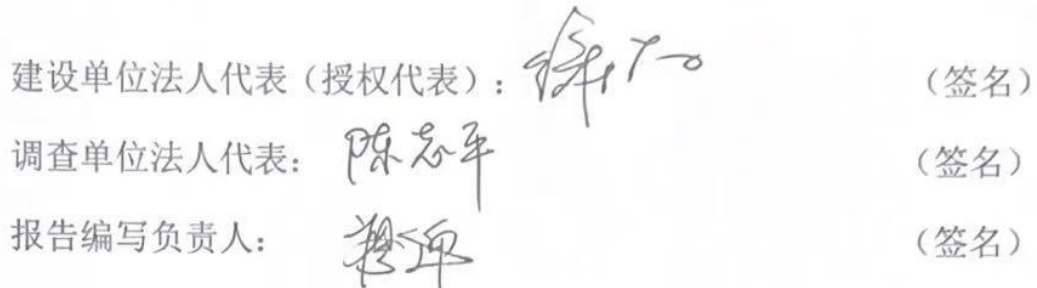 建设单位法人代表（授权代表）：（签名）
调查单位法人代表：陈志平（签名）
报告编写负责人：（签名）